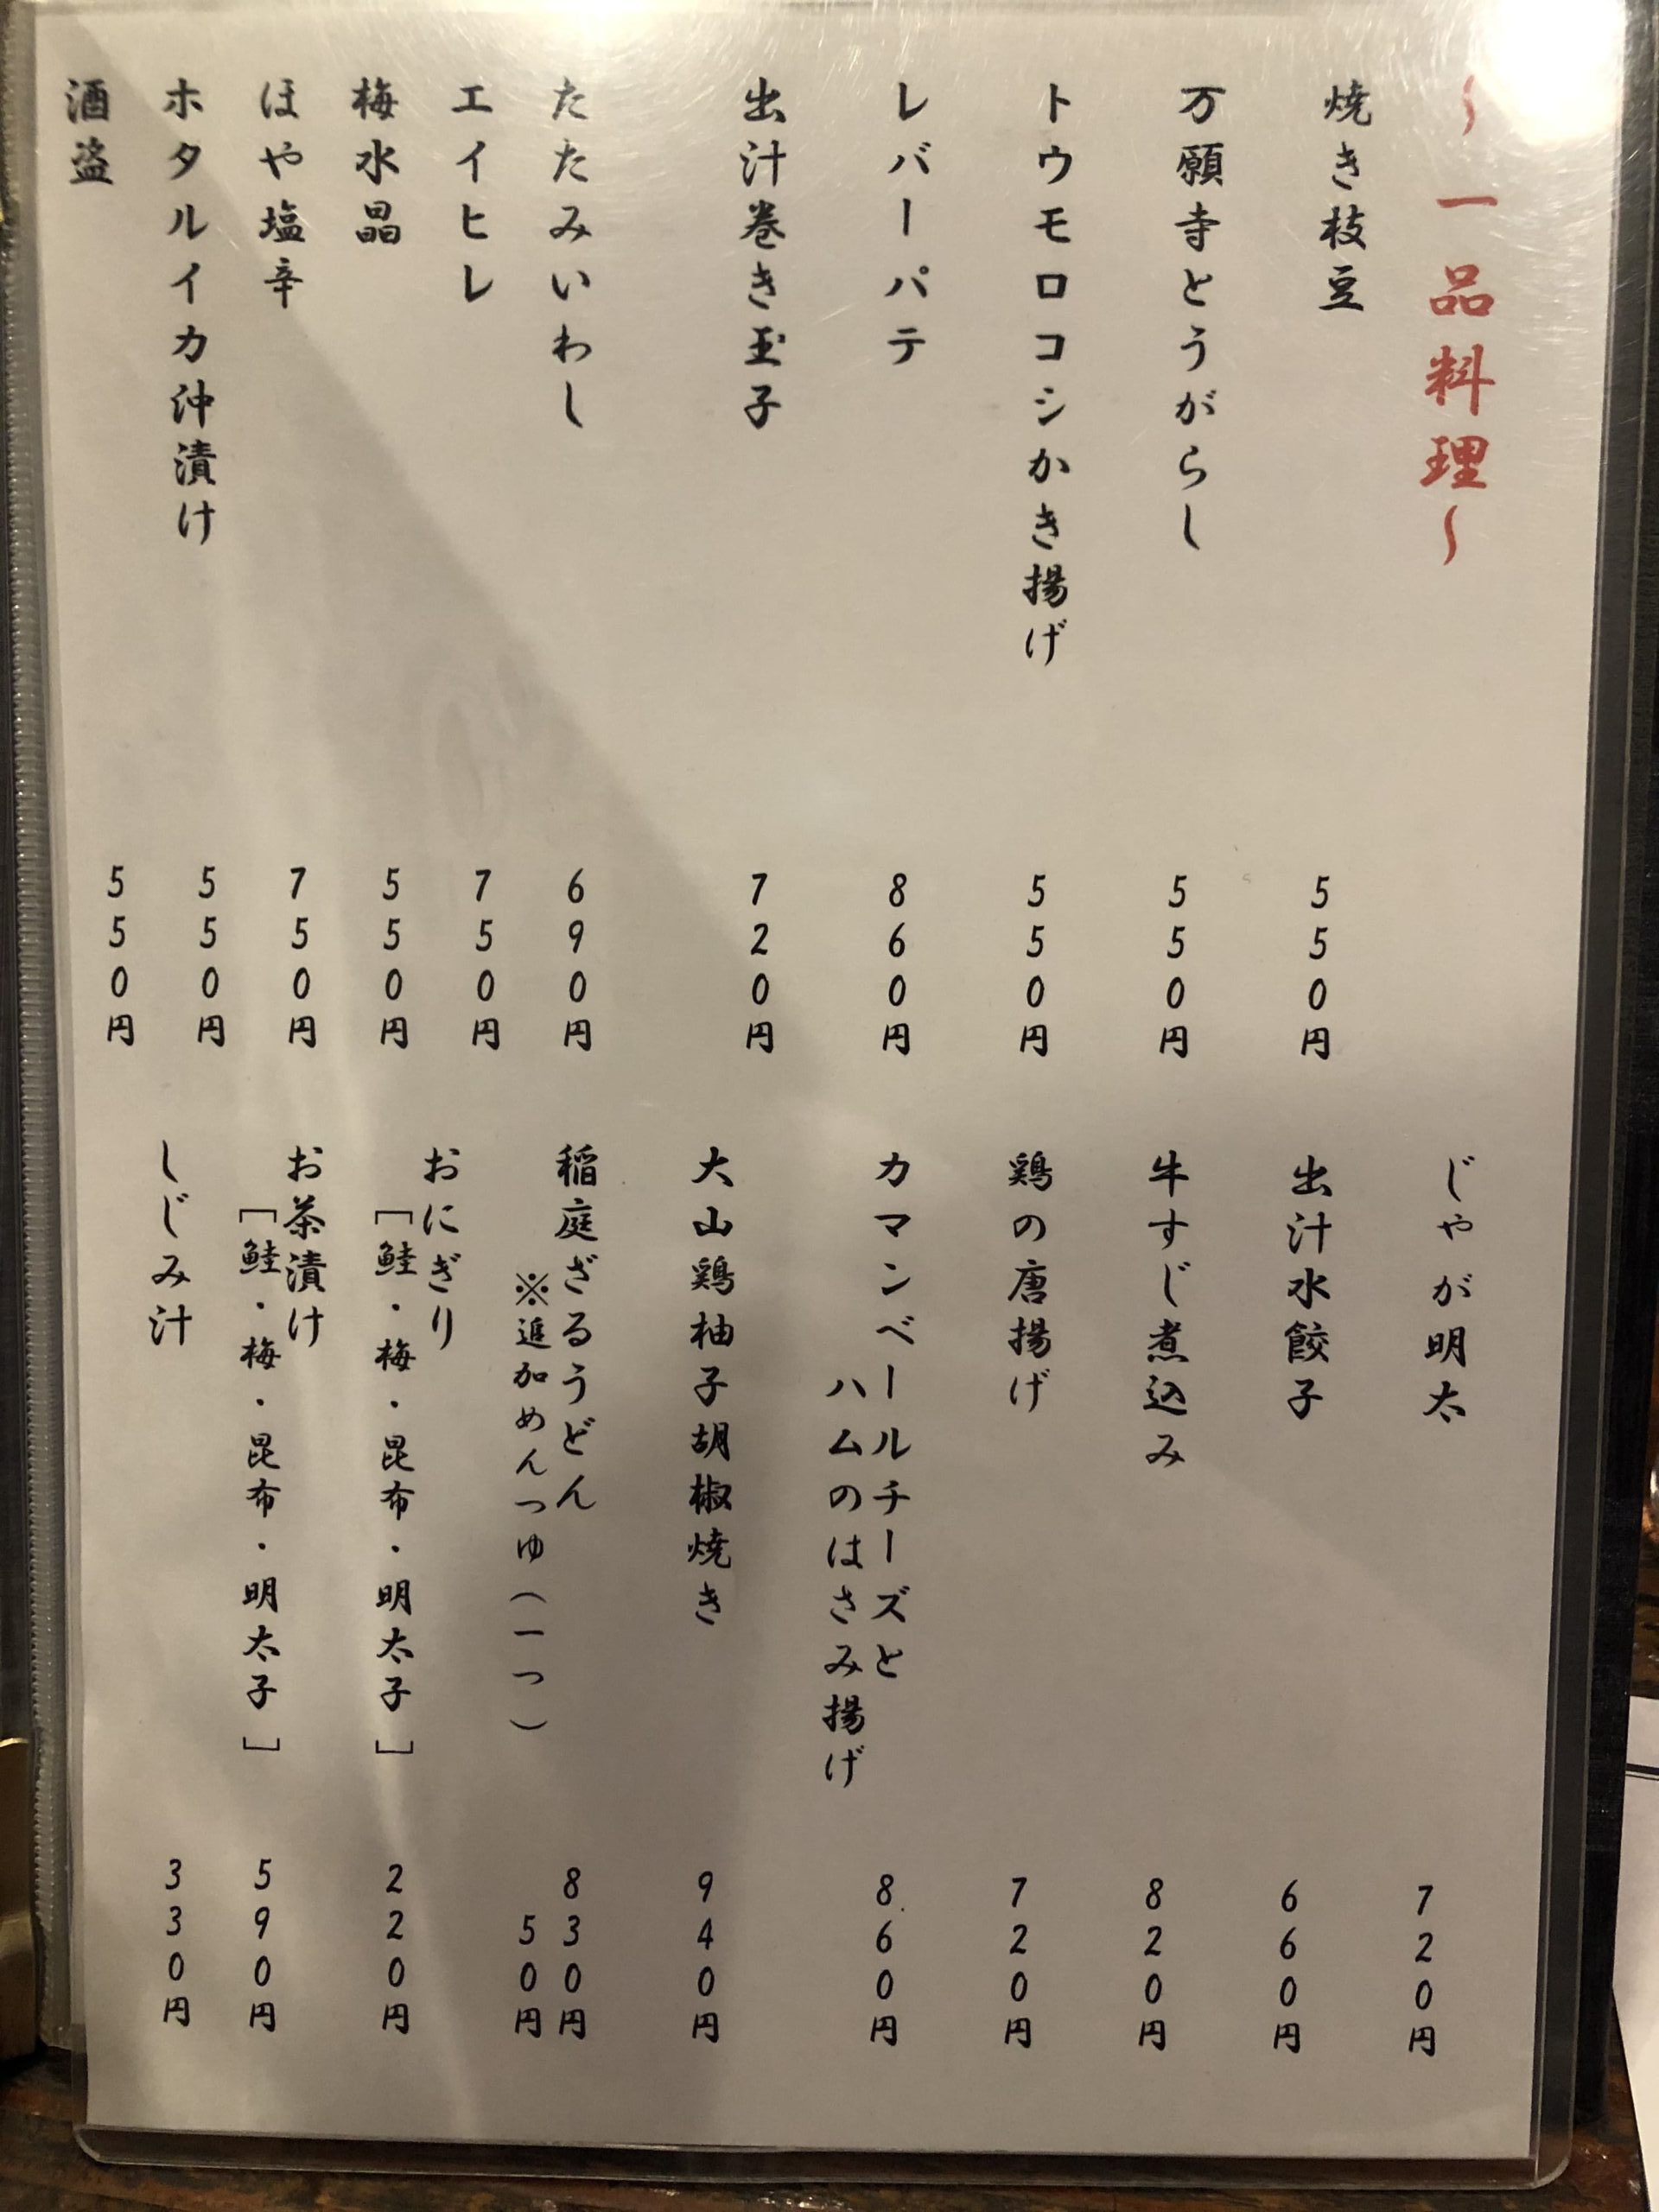 〜一品料理〜
焼き枝豆 550円
万願寺とうがらし 550円
トウモロコシかき揚げ 550円
レバーパテ 860円
出汁巻き玉子 720円
たたみいわし 690円
エイヒレ 750円
梅水晶 550円
ほや塩辛 750円
ホタルイカ沖漬け 550円
酒盗 550円
じゃが明太 720円
出汁水餃子 660円
牛すじ煮込み 820円
鶏の唐揚げ 720円
カマンベールチーズと
ハムのはさみ揚げ 860円
大山鶏柚子胡椒焼き 940円
稲庭ざるうどん 830円
※追加めんつゆ(一つ) 50円
おにぎり
[鮭・梅・昆布・明太子] 220円
お茶漬け
[鮭・梅・昆布・明太子] 590円
しじみ汁 330円